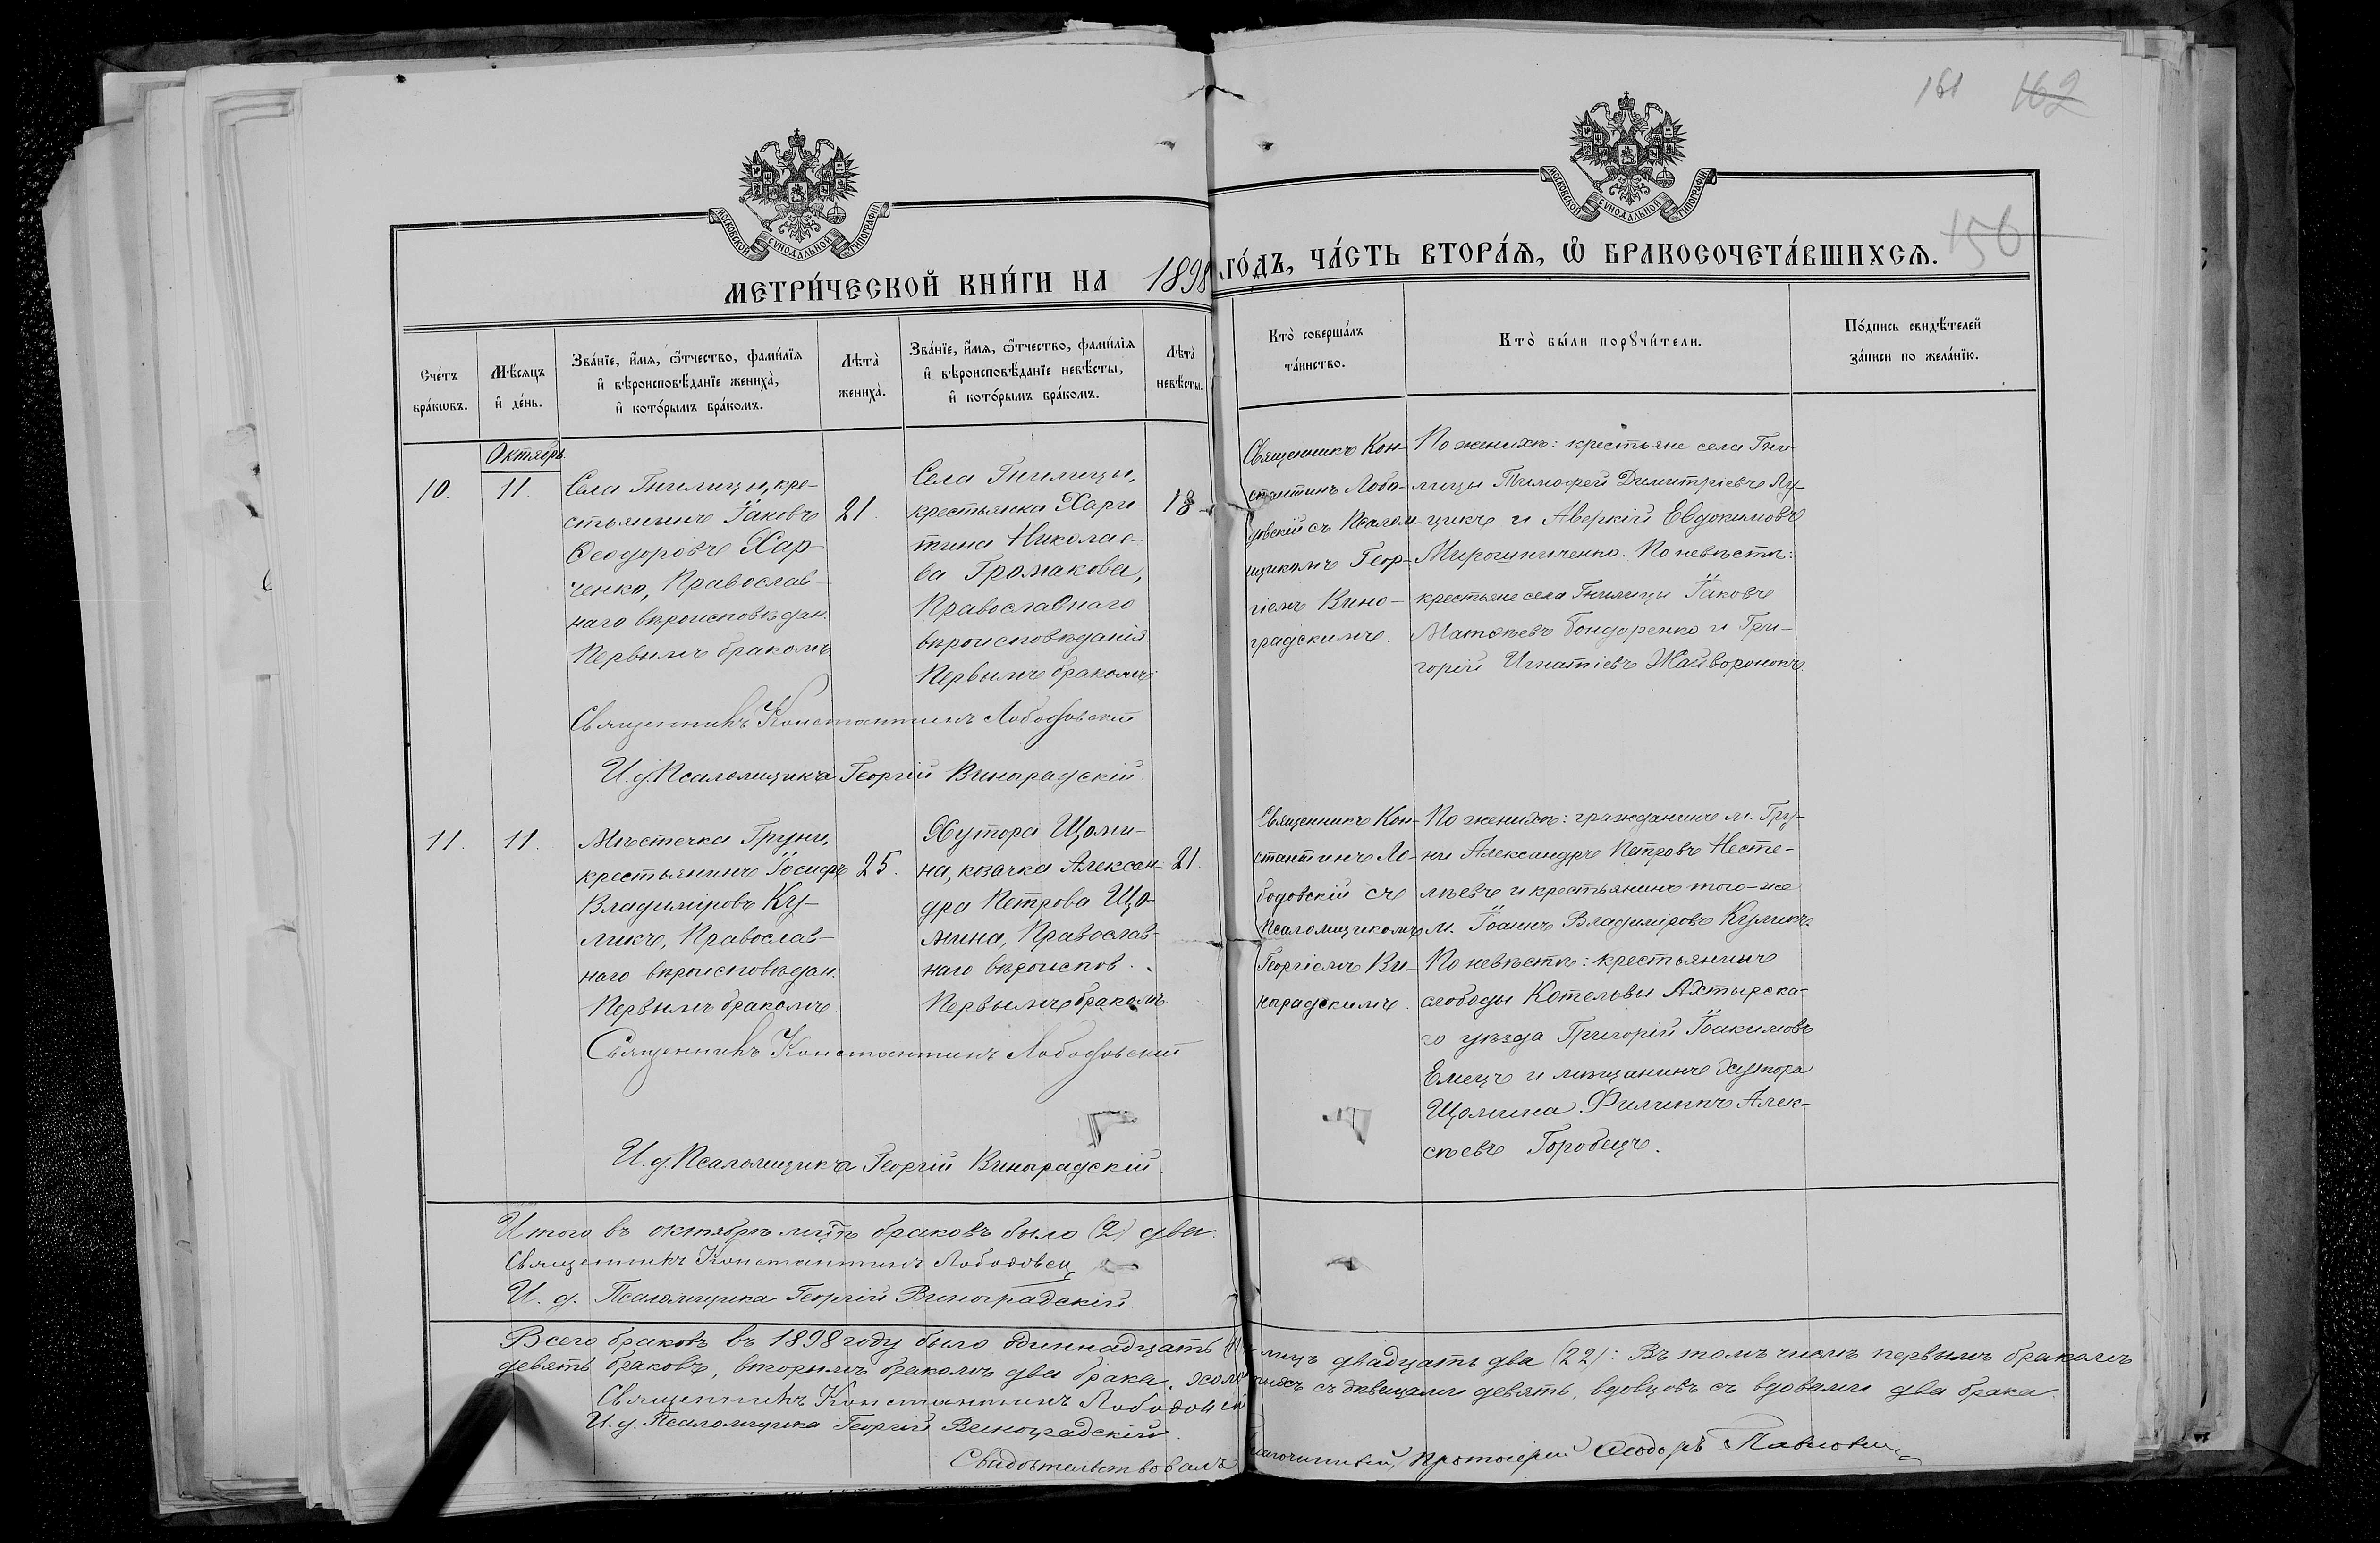 161 162
156
МОСКОВСКОЙ СУНОДАЛЬНОЙ ТИПОГРАФІИ
МОСКОВСКОЙ СУНОДАЛЬНОЙ ТИПОГРАФІИ
МЕТРИ́ЧЕСКОЙ КНИ́ГИ НА 1898 ГО́ДЪ, ЧА́СТЬ ВТОРА́Я, Ѽ БРАКОСОЧЕТА́ВШИХСЯ.
Сче́тъ
бра́кѡвъ.
Мѣ́сяцъ
и҆ де́нь.
Зва́нїе, и҆́мя, ѻ҆́тчество, фами́лїя
и҆ вѣроисповѣ́данїе жениха̀,
и҆ кото́рымъ бра́комъ.
Лѣта̀
жениха̀.
Зва́нїе, и҆́мя, ѻ҆́тчество, фами́лїя
и҆ вѣроисповѣ́данїе невѣ́сты,
и҆ кото́рымъ бра́комъ.
Лѣта̀
невѣ́сты.
Кто̀ соверша́лъ
та́инство.
Кто̀ бы́ли порꙋчи́тели.
По́дпись свидѣ́телей
за́писи по жела́нїю.
Октябрь
10.
11.
Села Гнилицы, кре-
стьянинъ Іаковъ
Ѳеодоровъ Хар-
ченко, Православ-
наго вѣроисповѣдан.
Первымъ бракомъ
21.
Села Гнилицы,
крестьянка Хари-
тина Николае-
ва Громакова,
Православнаго
вѣроисповѣданія.
Первымъ бракомъ
18
Священникъ Кон-
стантинъ Лобо-
довскій съ Псалом-
щикомъ Геор-
гіемъ Вино-
градскимъ.
По женихѣ: крестьяне села Гни-
лицы Тимофей Димитріевъ Лу-
цикъ и Аверкій Евдокимовъ
Мирошниченко. По невѣстѣ:
крестьяне села Гнилицы Іаковъ
Матѳеевъ Бондаренко и Гри-
горій Игнатіевъ Жайворонокъ.
Священникъ Константинъ Лободовскій
И. д. Псаломщика Георгій Виноградскій.
11.
11.
Мѣстечка Груни,
крестьянинъ Іосифъ
Владиміровъ Ку-
ликъ, Православ-
наго вѣроисповѣдан.
Первымъ бракомъ.
25.
Хутора Щоми-
на, козачка Алексан-
дра Петрова Що-
мина, Православ-
наго вѣроиспов.
Первымъ бракомъ
21.
Священникъ Кон-
стантинъ Ло-
бодовскій съ
Псаломщикомъ
Георгіемъ Ви-
ноградскимъ.
По женихѣ: гражданинъ м. Гру-
ни Александръ Петровъ Несте-
лѣевъ и крестьянинъ того-же
м. Іоаннъ Владиміровъ Куликъ.
По невѣстѣ: крестьянинъ
слободы Котельвы Ахтырска-
го уѣзда Григорій Іоакимовъ
Емецъ и мѣщанинъ Хутора
Щомина Филиппъ Алек-
сѣевъ Горобецъ.
Священникъ Константинъ Лободовскій
И. д. Псаломщика Георгій Виноградскій.
Итого въ октябрѣ мцѣ браковъ было (2) два.
Священникъ Константинъ Лободовскі
И. д. Псаломщика Георгій Виноградскій
Всего браковъ въ 1898 году было одиннадцать (11 лицъ двадцать два (22): Въ томъ числѣ первымъ бракомъ
девять браковъ, вторымъ бракомъ два брака, холостыхъ съ дѣвицами девять, вдовцовъ съ вдовами два брака.
Священникъ Константинъ Лободовскій
И. д. Псаломщика Георгій Виноградскій.
Свидѣтельствовалъ Благочинный, Протоіерей Ѳеодоръ